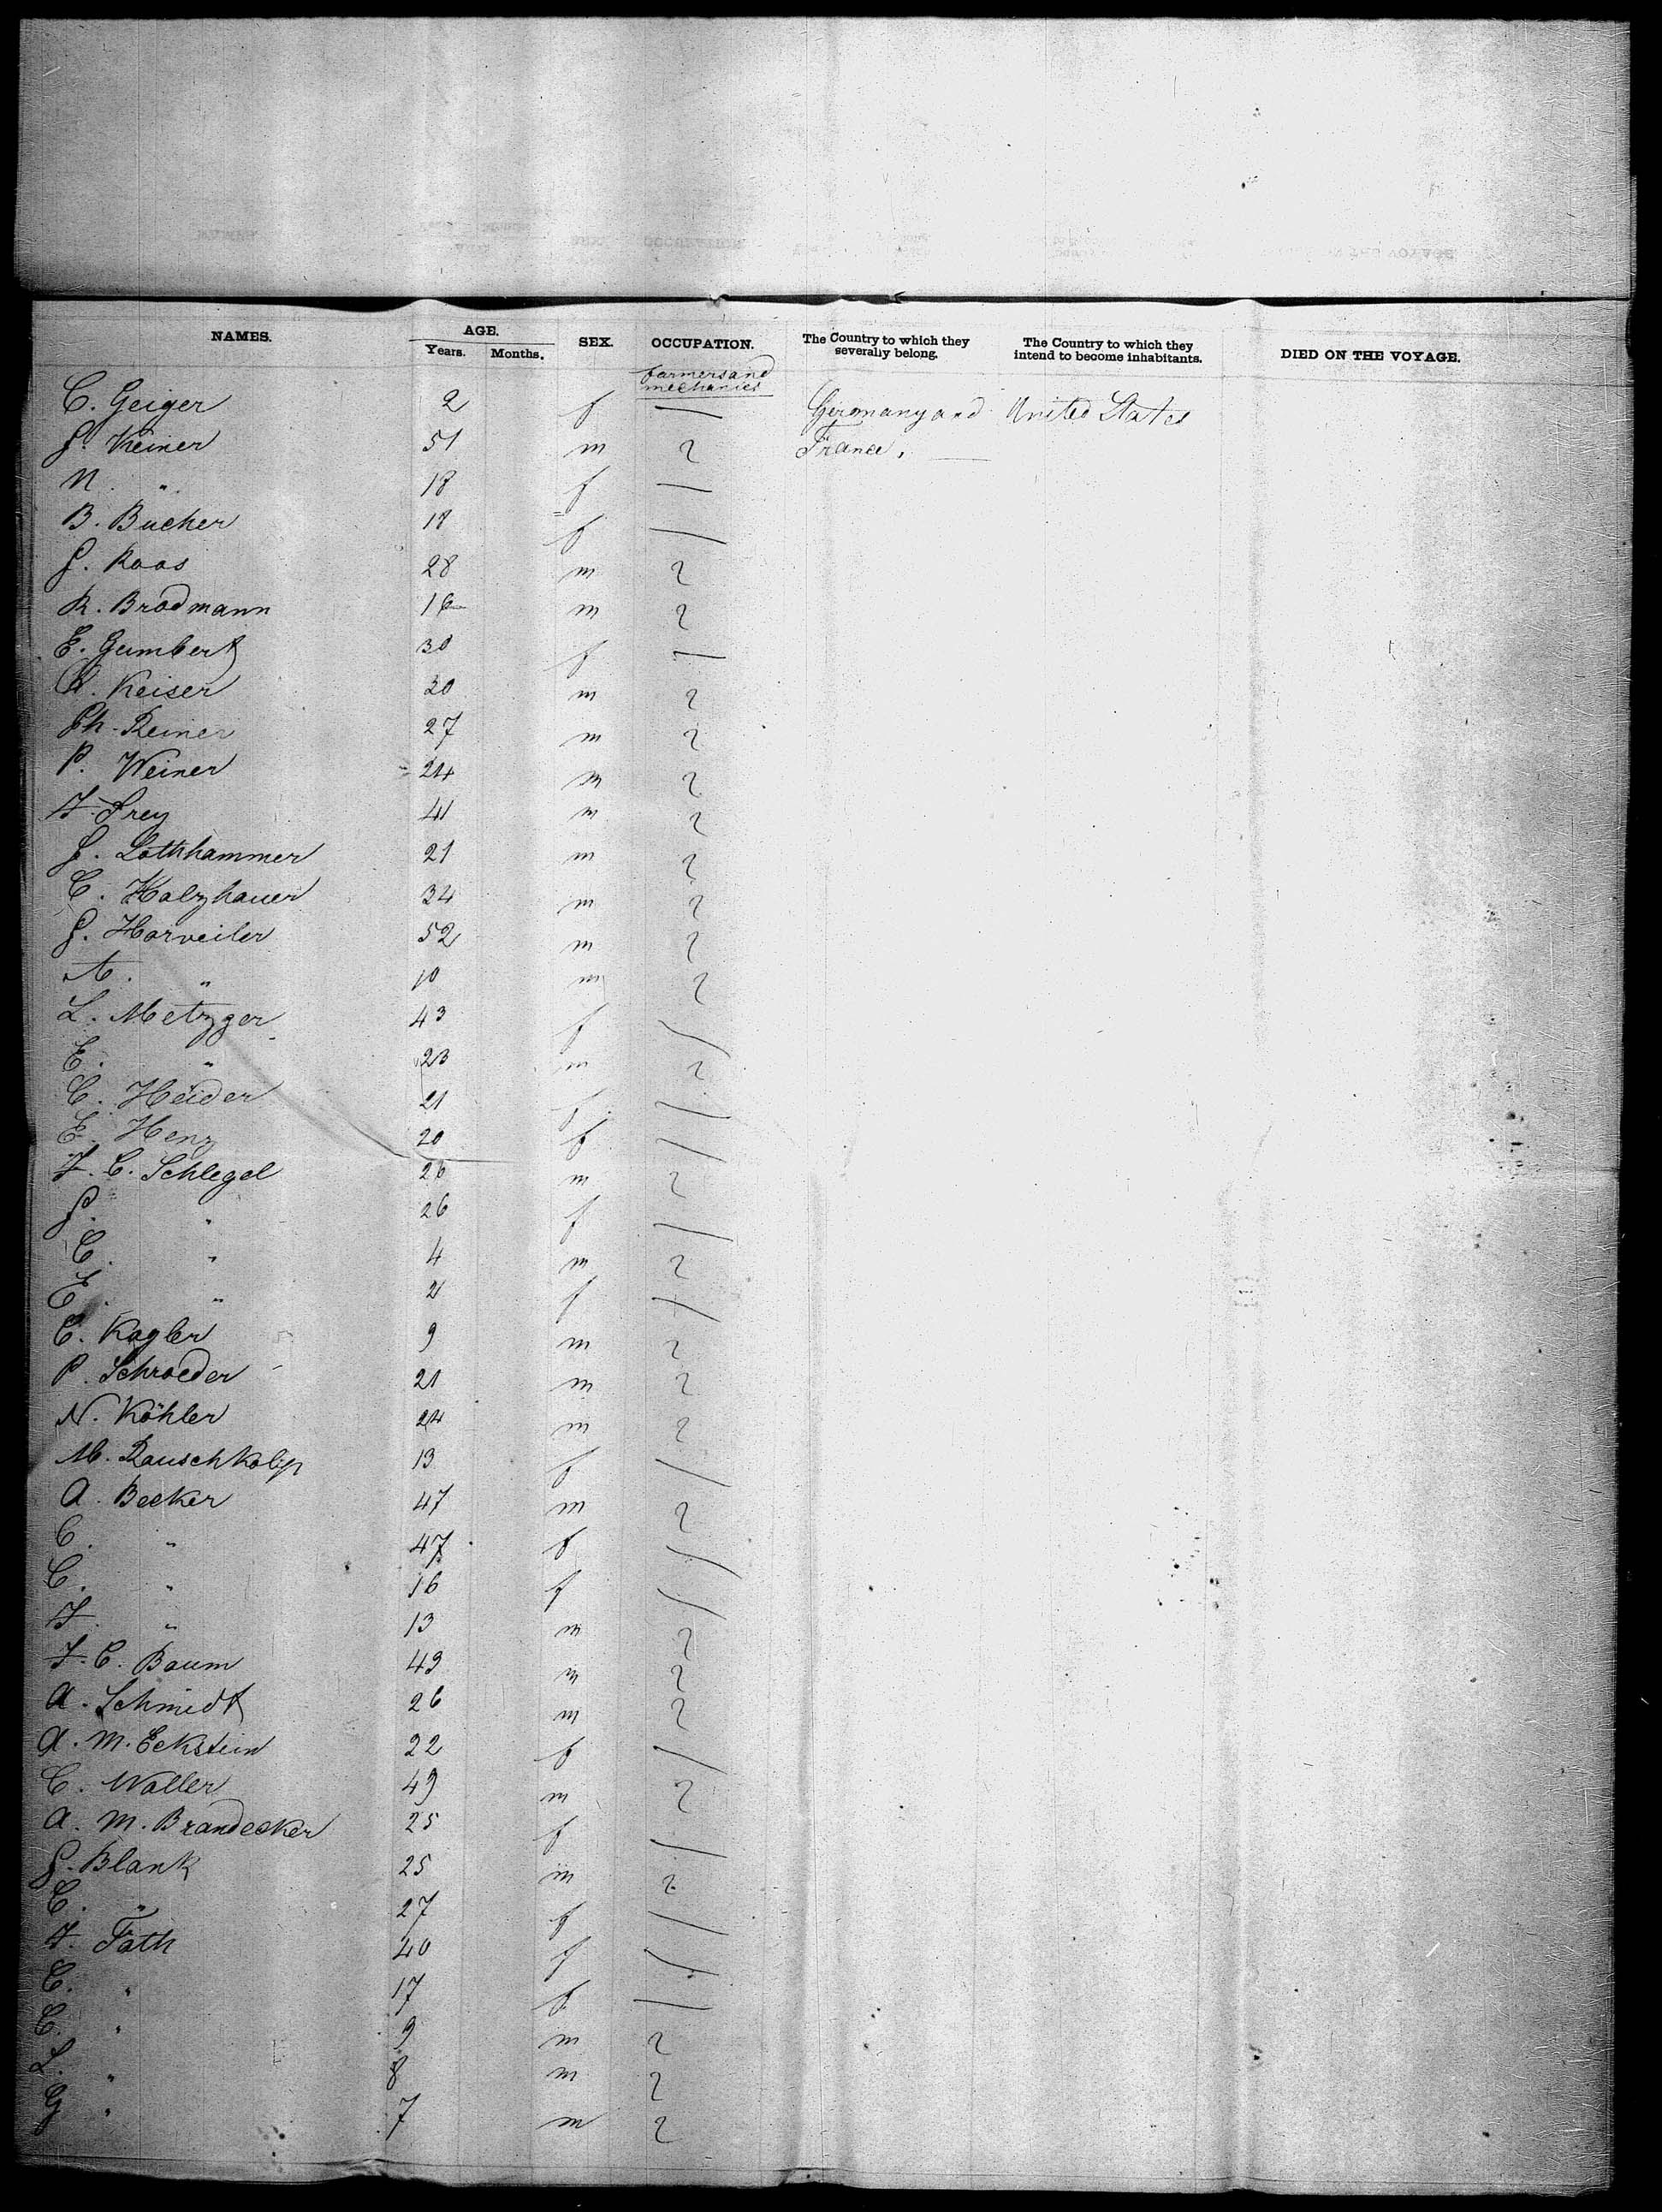 NAMES. AGE. SEX. OCCUPATION. The Country to which they severally belong. The Country to which they intend to become inhabitants. DIED ON THE VOYAGE.
Years. Months.
farmers and mechanics
C. Geiger 2 f — Germany and United States
J. Keiner 51 m 2 France, —
N. " 18 f —
B. Bucher 18 f —
J. Roos 28 m 2
R. Brodmann 16 m 2
E. Gumbert 30 f —
A. Keiser 30 m 2
Ph. Reiner 27 m 2
P. Weiner 24 m 2
F. Frey 41 m 2
J. Lothhammer 21 m 2
C. Holzhauer 34 m 2
J. Horveiler 52 m 2
A. " 10 m 2
L. Metzger 43 f —
E. " 23 m 2
C. Heider 21 f —
E. Henz 20 f —
F. C. Schlegel 26 m 2
J. " 26 f —
C. " 4 m 2
E. " 2 f —
C. Kogler 9 m 2
P. Schroeder 21 m 2
N. Köhler 24 m 2
M. Rauschkolb 13 f —
A. Becker 47 m 2
C. " 47 f —
C. " 16 f —
F. " 13 m 2
F. C. Baum 49 m 2
A. Schmidt 26 m 2
A. M. Eckstein 22 f —
C. Waller 49 m 2
A. M. Brandecker 25 f —
J. Blank 25 m 2
C. " 27 f —
F. Fath 40 f —
C. " 17 f —
C. " 9 m 2
L. " 8 m 2
G " 7 m 2